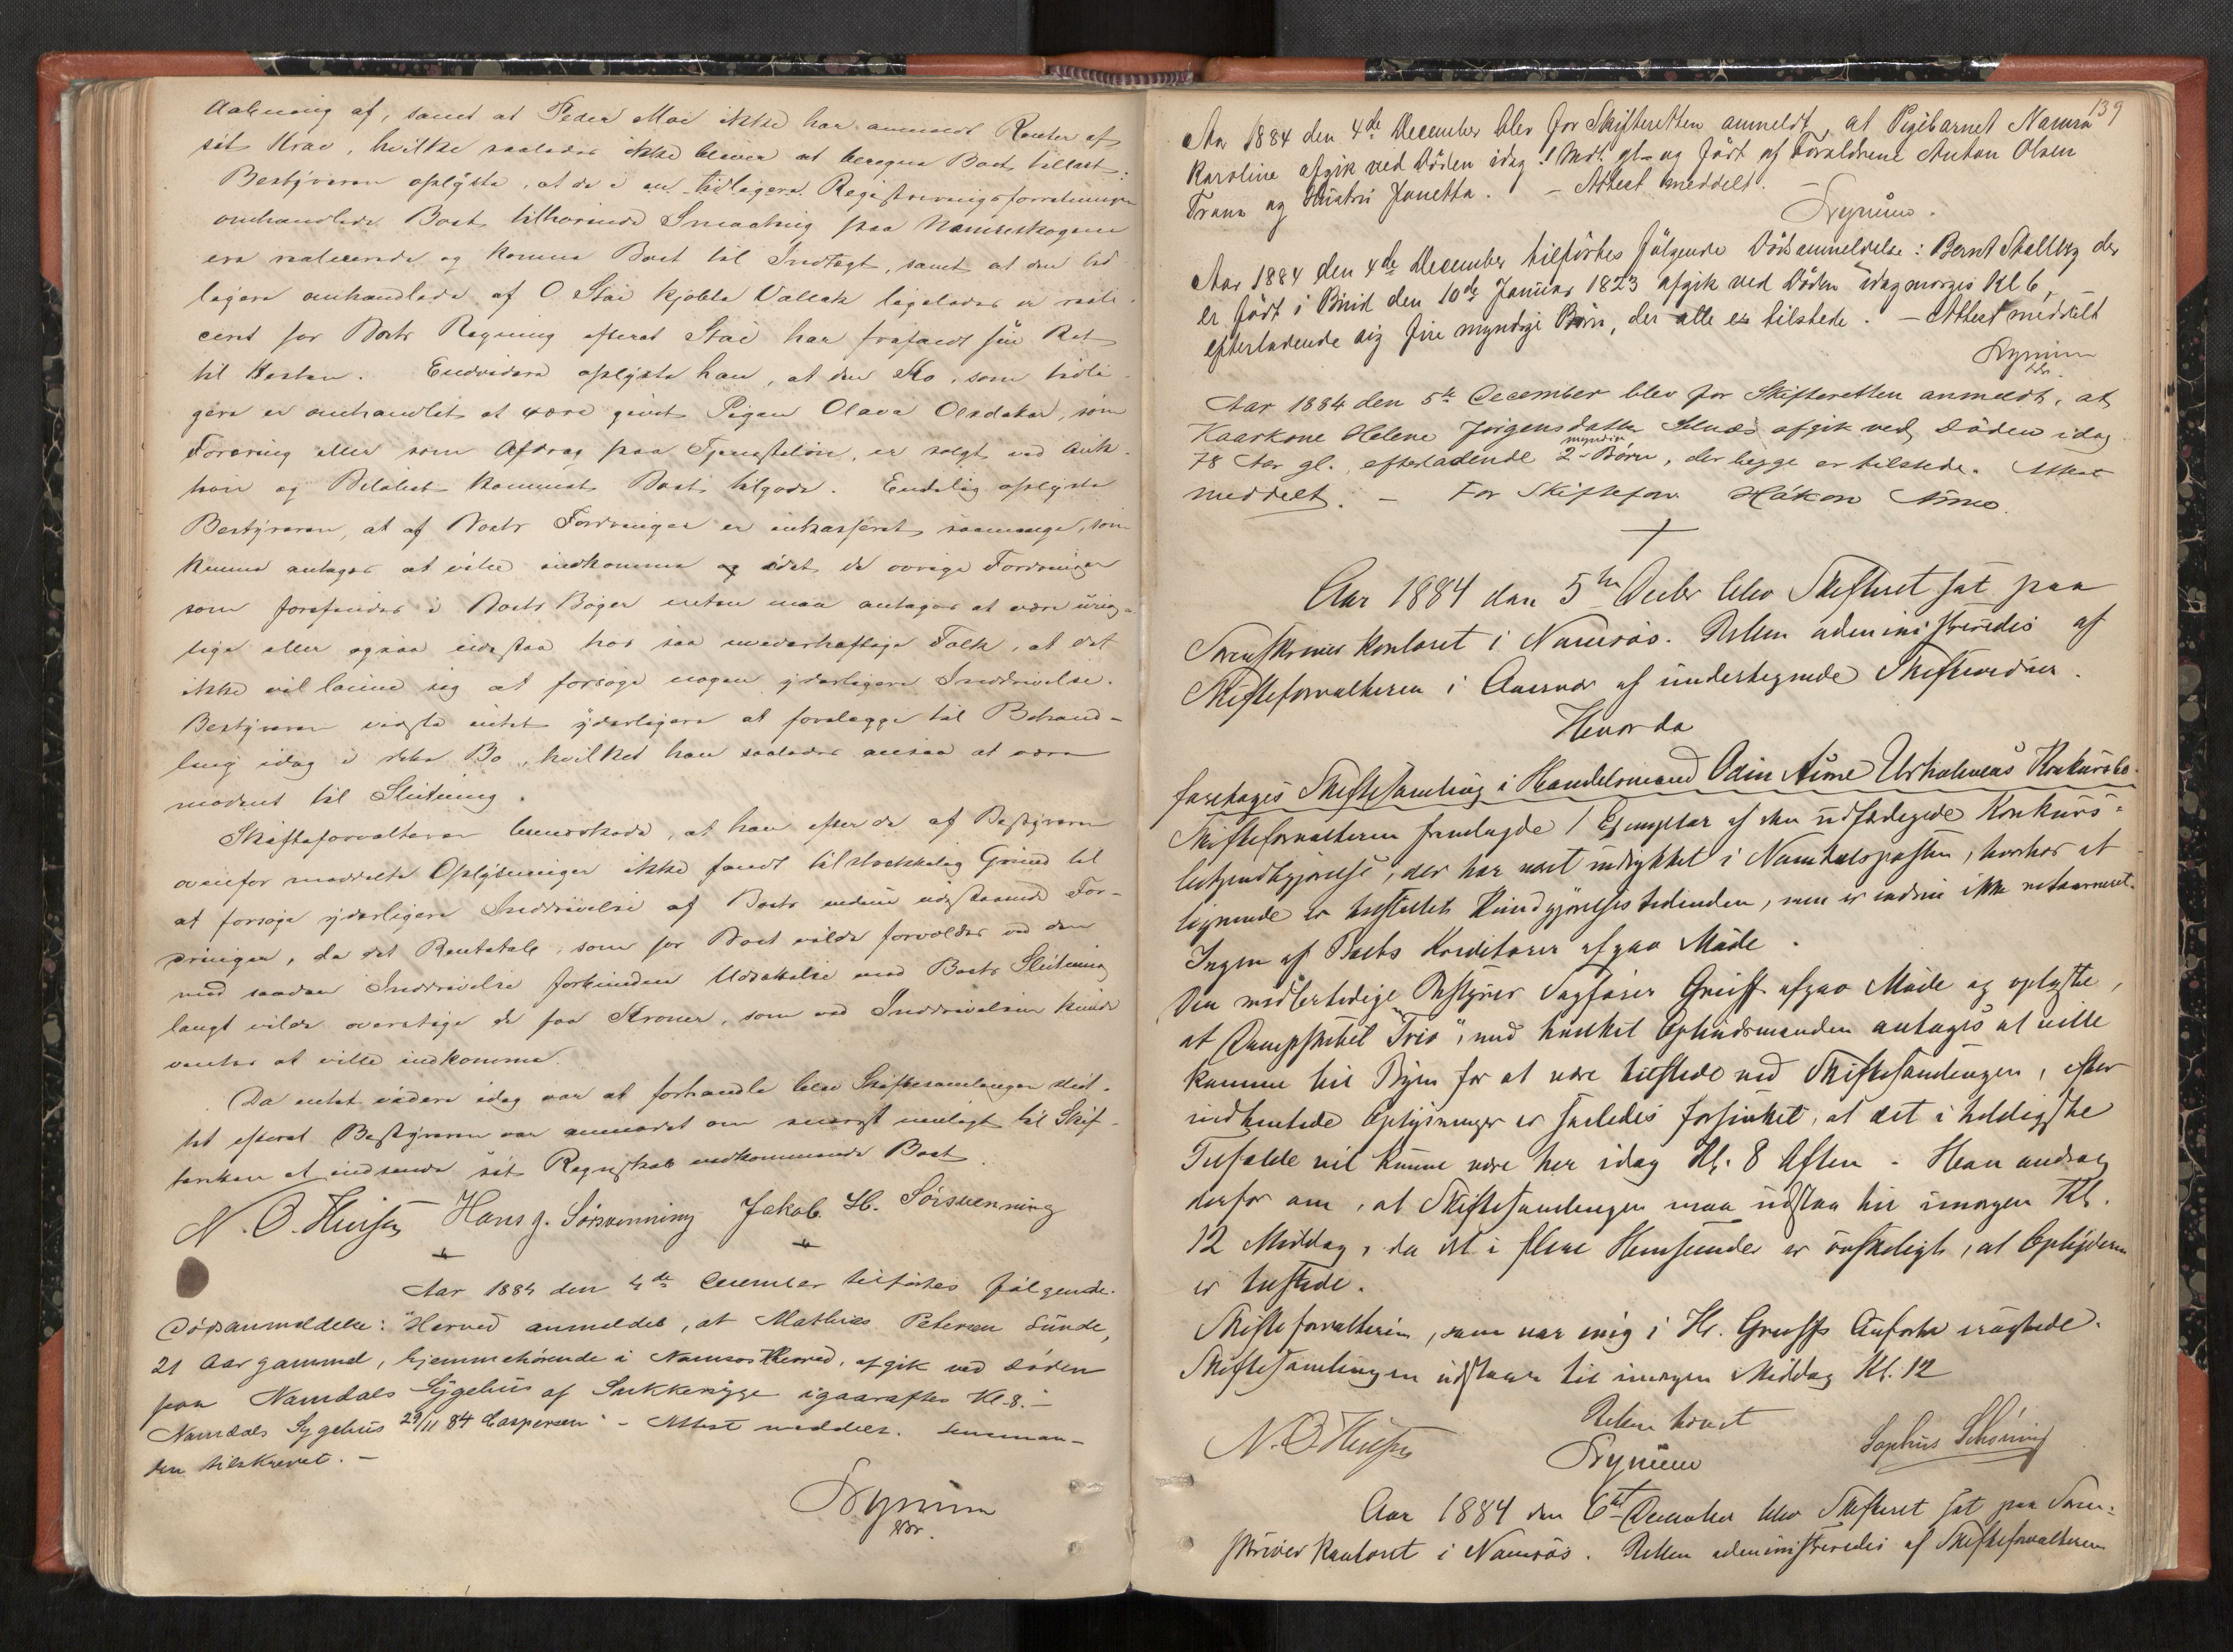 Aabning af, samt at Peder Moe ikke har anmeldt Renter af
sit Krav, hvilke saaledes ikke bliver at beregne Boet tillast.
Bestyreren oplyste, at de i en tidligere Registreringsforretningen
omhandlede Boet tilhørende Smaating paa Namsskogene
ere realiserede og komne Boet til Indtægt, samt at den tid-
ligere omhandlede af O. Staé kjøbte Vallak ligeledes er reali-
ceret for Boets Regning efterat Staé har frafaldt sin Ret
til Hesten. Endvidere oplyste han, at den Ko, som tidli-
gere er omhandlet at være givet Pigen Olava Olsdatter, som
Foræring eller som Afdrag paa Tjenesteløn, er solgt ved Auk-
tion og Beløbet kommet Boet tilgode. Endelig oplyste
Bestyreren, at af Boets Fordringer er inkasseret saamange, som
kunne antages at ville indkomme og idet de øvrige Fordringer
som forefindes i Boets Bøger enten maa antages at være urig-
tige eller ogsaa udestaa hos saa uvederhæftige Folk, at det
ikke vil lønne sig at forsøge nogen yderligere Inddrivelse.
Bestyreren vidste intet yderligere at forelægge til Behand-
ling idag i dette Bo, hvilket han saaledes ansaa at være
modent til Slutning.
Skifteforvalteren bemærkede, at han efter de af Bestyreren
ovenfor meddelte Oplysninger ikke fandt tilstrækkelig Grund til
at forsøge yderligere Inddrivelse af Boets endnu udestaaende For-
dringer, da det Rentetab, som for Boet vilde forvoldes ved den
med saadan Inddrivelse forbundne Udsættelse med Boets Slutning
langt vilde overstige de faa Kroner, som ved Inddrivelsen kunde
ventes at ville indkomme.
Da intet videre idag var at forhandle blev Skiftesamlingen slut-
tet efterat Bestyreren var anmodet om snarest muligt til Skif-
teretten at indsende sit Regnskab vedkommende Boet.
Hans J. Sørsvenning Jakob H. Sørsvenning
Aar 1884 den 4de December tilførtes følgende
Dødsanmeldelse: "Herved anmeldes, at Mathias Petersen Sunde,
21 Aar gammel, hjemmehørende i Namsos Herred, afgik ved Døden
paa Namdals Sygehus af Sukkersyge igaaraftes Kl. 8.
Namdals Sygehus 29/11 84 Caspersen" - Attest meddelt. Lensman-
den tilskrevet. -
139
Aar 1884 den 4de December blev for Skifteretten anmeldt, at Pigebarnet Namra
Karoline afgik ved Døden idag 1 Mdt. gl. og født af Forældrene Anton Olsen
Trana og Hustru Janetta. - Attest meddelt. -
Aar 1884 den 4de December tilførtes følgende Dødsanmeldelse: Bernt Skalberg der
er født i den 10de Januar 1823 afgik ved Døden idagmorges Kl 6,
efterladende sig fire myndige Børn, der alle er tilstede. - Attest meddelt
Aar 1884 den 5te December blev for Skifteretten anmeldt, at
Kaarkone Helene Jørgensdatter Selnæs afgik ved Døden idag
78 Aar gl., efterladende 2 myndige Børn, der begge er tilstede. Attest
meddelt. - For Skifteforv. Håkon Aune.
Aar 1884 den 5te Decbr blev Skifteret sat paa
Sorenskriverkontoret i Namsos. Retten administreredes af
Skifteforvalteren i Overvær af undertegnede Skiftevidner.
Hvorda
foretoges Skiftesamling i Handelsmand Odin Aune Urholmens Konkursbo.
Skifteforvalteren fremlagde 1 Exemplar af den udfærdigede Konkurs-
bekjendtgjørelse, der har været indrykket i Namdalsposten, hvorhos et
lignende er tilstillet Kundgjørelsestidenden, men er endnu ikke returneret.
Ingen af Boets Kreditorer afgav Møde.
Den midlertidige Bestyrer Sagfører Greiff afgav Møde og oplyste,
at Dampskibet "Trio", med hvilket Opbudsmanden antages at ville
komme til Byen for at være tilstede ved Skiftesamlingen, efter
indhentede Oplysninger er saaledes forsinket, at det i heldigste
Tilfælde vil kunne være her idag Kl. 8 Aften. Han androg
derfor om, at Skiftesamlingen maa udstaa til imorgen Kl.
12 Middag, da det i flere Henseender er ønskeligt, at Opbyderen
er tilstede.
Skifteforvalteren, som var enig i Hr. Greiffs Anførte
Skiftesamlingen udstaar til imorgen Middag Kl. 12
Retten hævet
Sophus Schøning
Aar 1884 den 6te December blev Skifteret sat paa Soren-
skriverkontoret i Namsos. Retten administreredes af Skifteforvalteren